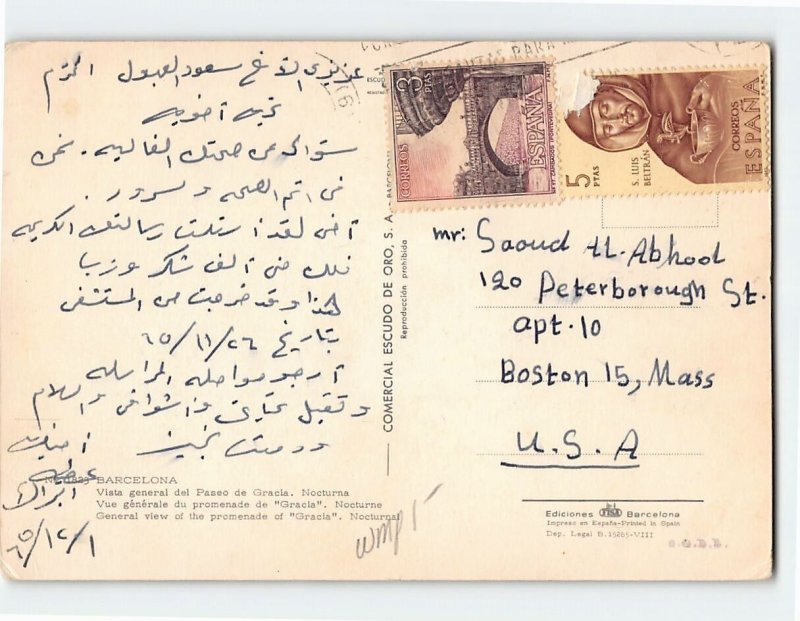 عزيزي الأخ سعود العبول المحترم
تحية أخوية
سؤالي عن صحتك الغالية. نحن
في أتم الصحة والسرور.
أخي لقد استلمت رسالتك الكريمة
فلك مني ألف شكر
هذا وقد خرجت من المستشفى
بتاريخ ٦٥/١١/٢٦
أرجو مواصلة المراسلة
وتقبل تحياتي وأشواقي والسلام
ودمت بخير
أخيك
عطية
٦٥/١٢/١
BARCELONA
Vista general del Paseo de Gracia. Nocturna
Vue générale du promenade de "Gracia". Nocturne
General view of the promenade of "Gracia". Nocturnal
wmp 5
COMERCIAL ESCUDO DE ORO, S. A. - BARCELONA
Reproducción prohibida
3 PTAS
CORREOS
ESPAÑA
5 PTAS
S. LUIS BELTRAN
CORREOS
ESPAÑA
mr: Saoud Al-Abhool
120 Peterborough St.
apt. 10
Boston 15, Mass
U.S.A
Ediciones FISA Barcelona
Impreso en España-Printed in Spain
Dep. Legal B.15265-VIII